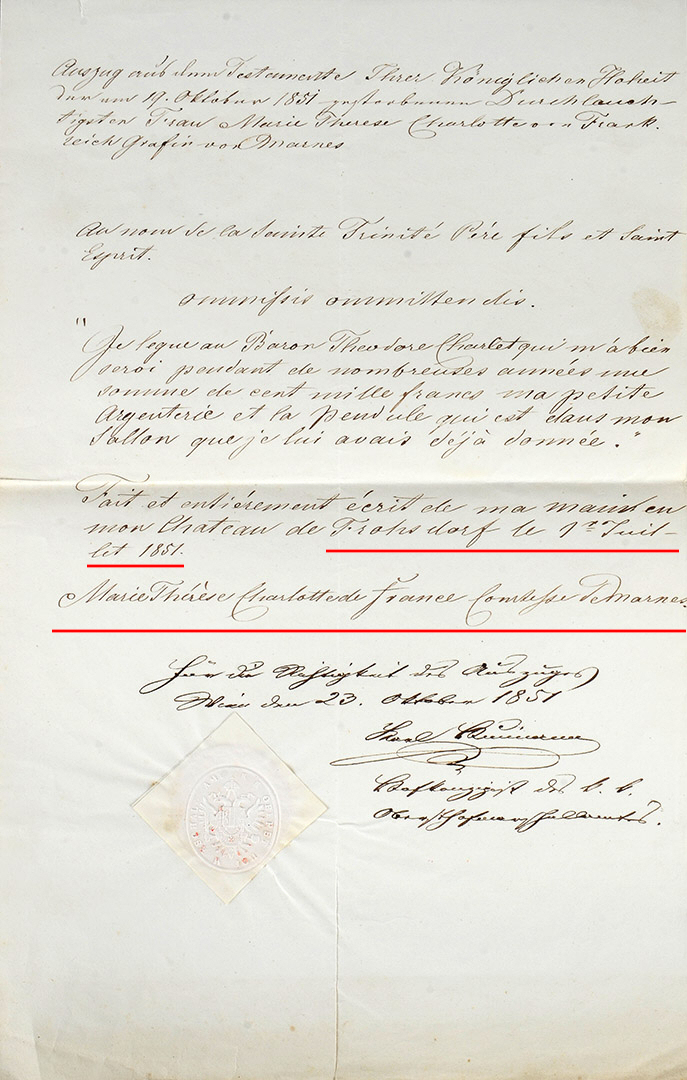 Auszug aus dem Testamente Ihrer Königlichen Hoheit
der am 19. Oktober 1851 gestorbenen Durchlauch-
tigsten Frau Marie Therese Charlotte von Frank-
reich Gräfin von Marnes
Au nom de la Sainte Trinité Père fils et Saint
Esprit.
ommissis ommittendis.
"Je legue au Baron Theodore Charlet qui m'a bien
servi pendant de nombreuses années une
somme de cent mille francs ma petite
Argenterie et la pendule qui est dans mon
Sallon que je lui avais déjà donnée."
Fait et entièrement écrit de ma main en
mon Chateau de Frohsdorf le 1er Juil-
let 1851.
Marie Thérèse Charlotte de france Comtesse de Marnes.
Für die Richtigkeit des Auszuges
Wien den 23. Oktober 1851
Karl
Hofkonzipist des k. k.
Obersthofmarschallamtes.